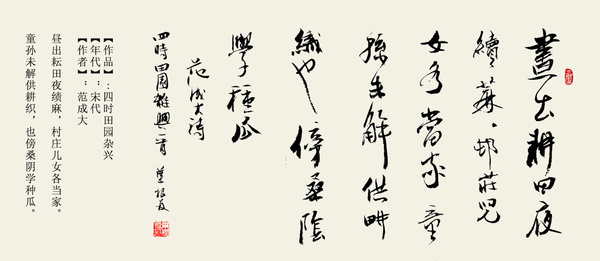 晝出耕田夜
續蔴邨莊兒
女各當家童
孫未解供畊
織也傍桑陰
學種瓜
范成大詩
四時田園雜興一首
【作品】:四时田园杂兴
【年代】:宋代
【作者】:范成大
昼出耘田夜绩麻，村庄儿女各当家。
童孙未解供耕织，也傍桑阴学种瓜。